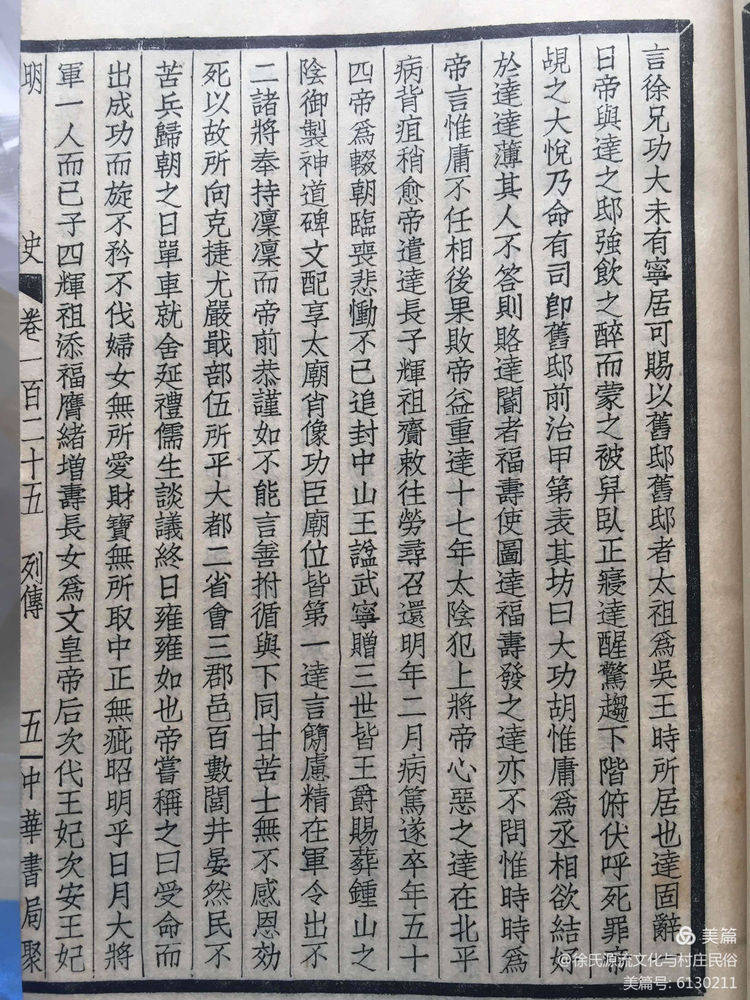 言徐兄功大未有寧居可賜以舊邸舊邸者太祖爲吳王時所居也達固辭
日帝與達之邸強飲之醉而蒙之被舁臥正寢達醒驚趨下階俯伏呼死罪帝
覘之大悅乃命有司卽舊邸前治甲第表其坊曰大功胡惟庸爲丞相欲結好
於達達薄其人不答則賂達閽者福壽使圖達福壽發之達亦不問惟時時爲
帝言惟庸不任相後果敗帝益重達十七年太陰犯上將帝心惡之達在北平
病背疽稍愈帝遣達長子輝祖齎敕往勞尋召還明年二月病篤遂卒年五十
四帝爲輟朝臨喪悲慟不已追封中山王諡武寧贈三世皆王爵賜葬鍾山之
陰御製神道碑文配享太廟肖像功臣廟位皆第一達言簡慮精在軍令出不
二諸將奉持凜凜而帝前恭謹如不能言善拊循與下同甘苦士無不感恩効
死以故所向克捷尤嚴戢部伍所平大都二省會三郡邑百數閭井晏然民不
苦兵歸朝之日單車就舍延禮儒生談議終日雍雍如也帝嘗稱之曰受命而
出成功而旋不矜不伐婦女無所愛財寶無所取中正無疵昭明乎日月大將
軍一人而已子四輝祖添福膺緒增壽長女爲文皇帝后次代王妃次安王妃
明史 卷一百二十五 列傳 五 中華書局聚
美篇
@徐氏源流文化与村庄民俗
美篇号: 6130211